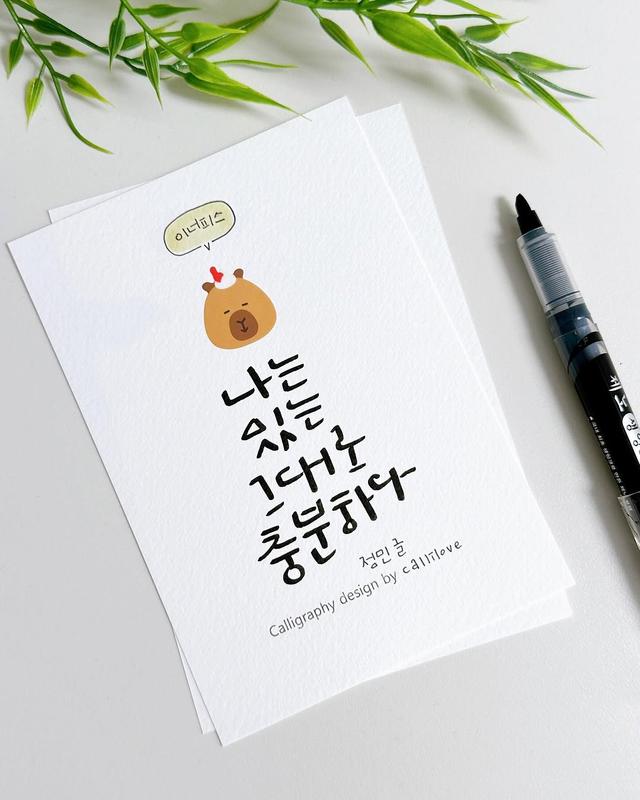 이너피스
나는
있는
그대로
충분하다
정민글
Calligraphy design by callilove